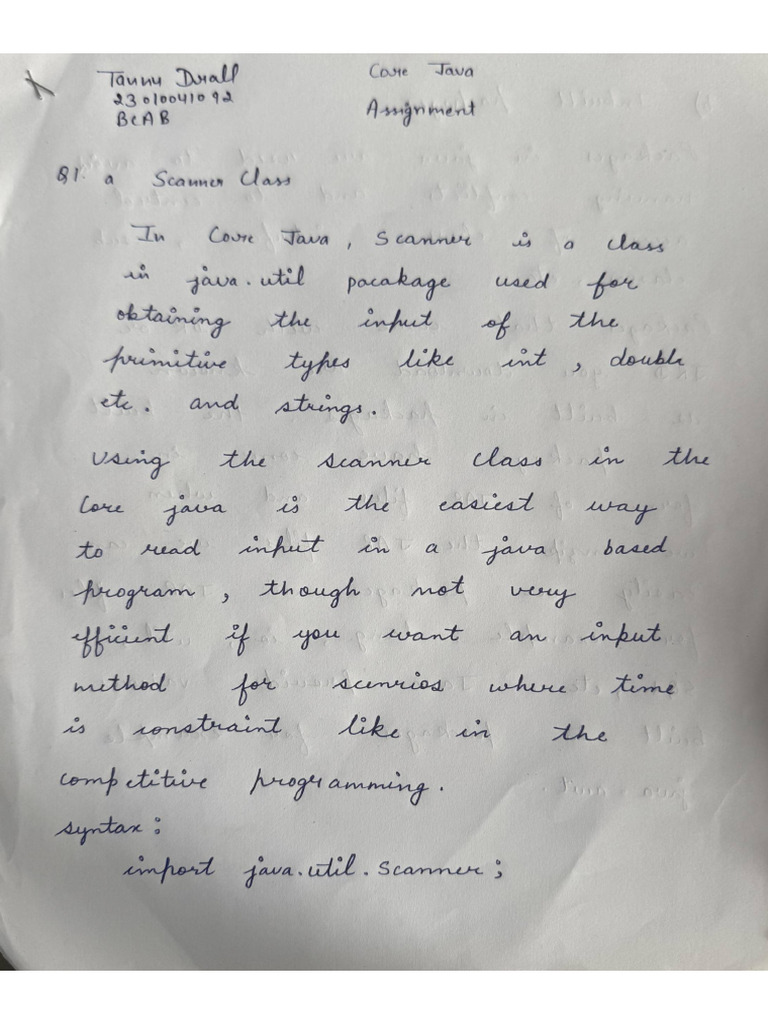 Tannu Drall
Core Java
23010041092
Assignment
BCAB
Q1. a Scanner Class
In Core Java, Scanner is a class
in java.util pacakage used for
obtaining the input of the
primitive types like int, double
etc. and strings.
Using the scanner class in the
Core java is the easiest way
to read input in a java based
program, though not very
efficient if you want an input
method for scenrios where time
is constraint like in the
competitive programming.
syntax:
import java.util.Scanner;